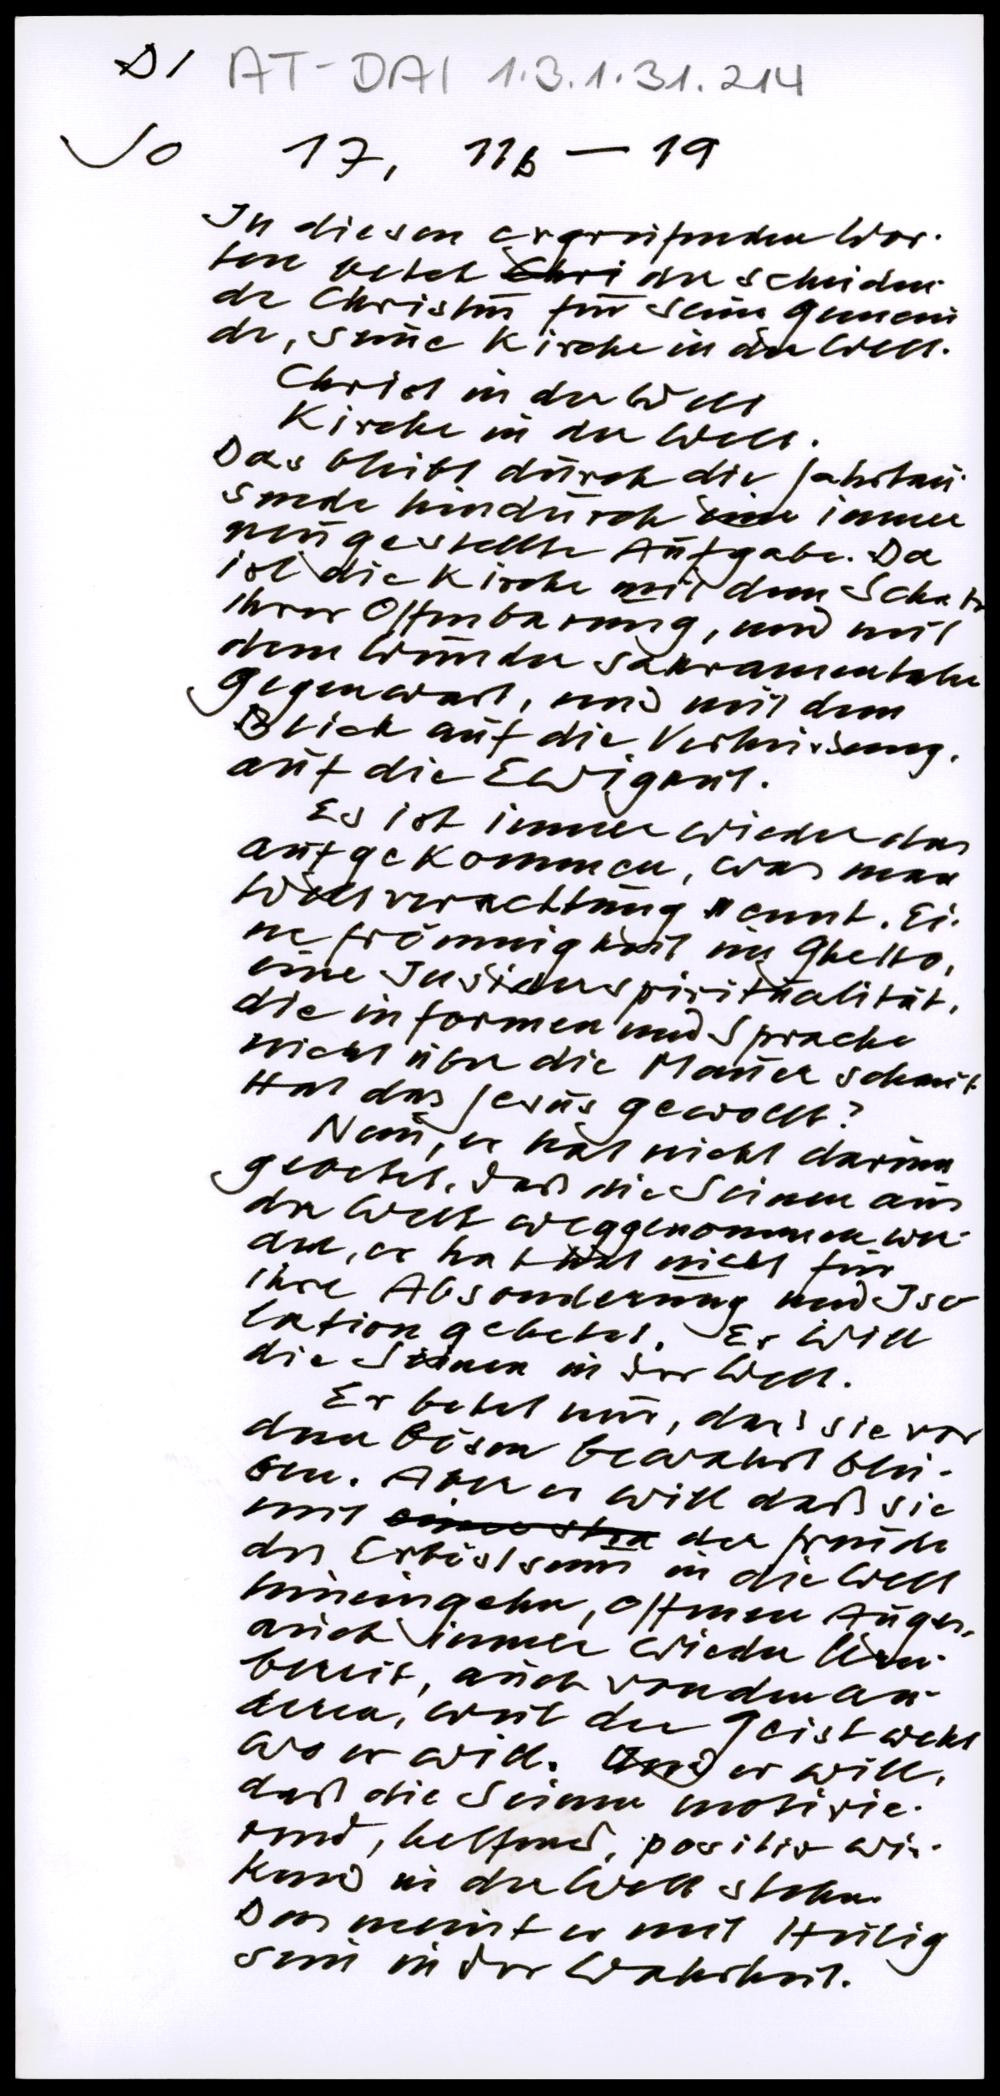 DI AT-DAI 1.3.1.31.214
Jo 17, 11b – 19
In diesen ergreifenden Wor-
ten betet Chri der scheiden-
de Christus für seine Gemein
de, seine Kirche in der Welt.
Christ in der Welt
Kirche in der Welt.
Das bleibt durch die Jahrtau
sende hindurch eine immer
neu gestellte Aufgabe. Da
ist die Kirche mit dem Schatz
ihrer Offenbarung, und mit
dem Wunder sakramentaler
Gegenwart, und mit dem
Blick auf die Verheissung,
auf die Ewigkeit.
Es ist immer wieder das
aufgekommen, was man
Weltverachtung nennt. Ei-
ne Frömmigkeit im Ghetto,
eine Insiderspiritualität,
die in Formen und Sprache
nicht über die Mauer schaut
Hat das Jesus gewollt?
Nein, er hat nicht darum
gebetet, daß die Seinen aus
der Welt weggenommen wer-
den, er hat hat nicht für
ihre Absonderung und Iso
lation gebetet. Er will
die Seinen in der Welt.
Er betet nur, daß sie vor
dem Bösen bewahrt blei-
ben. Aber er will daß sie
mit der Freude
des Erlöstseins in die Welt
hineingehn, offenen Auges,
auch immer wieder lern-
bereit, auch von den an-
deren, weil der Geist weht
wo er will. Und er will,
daß die Seinen motivie-
rend, helfend, positiv wir-
kend in der Welt stehn.
Das meint er mit Heilig
sein in der Wahrheit.